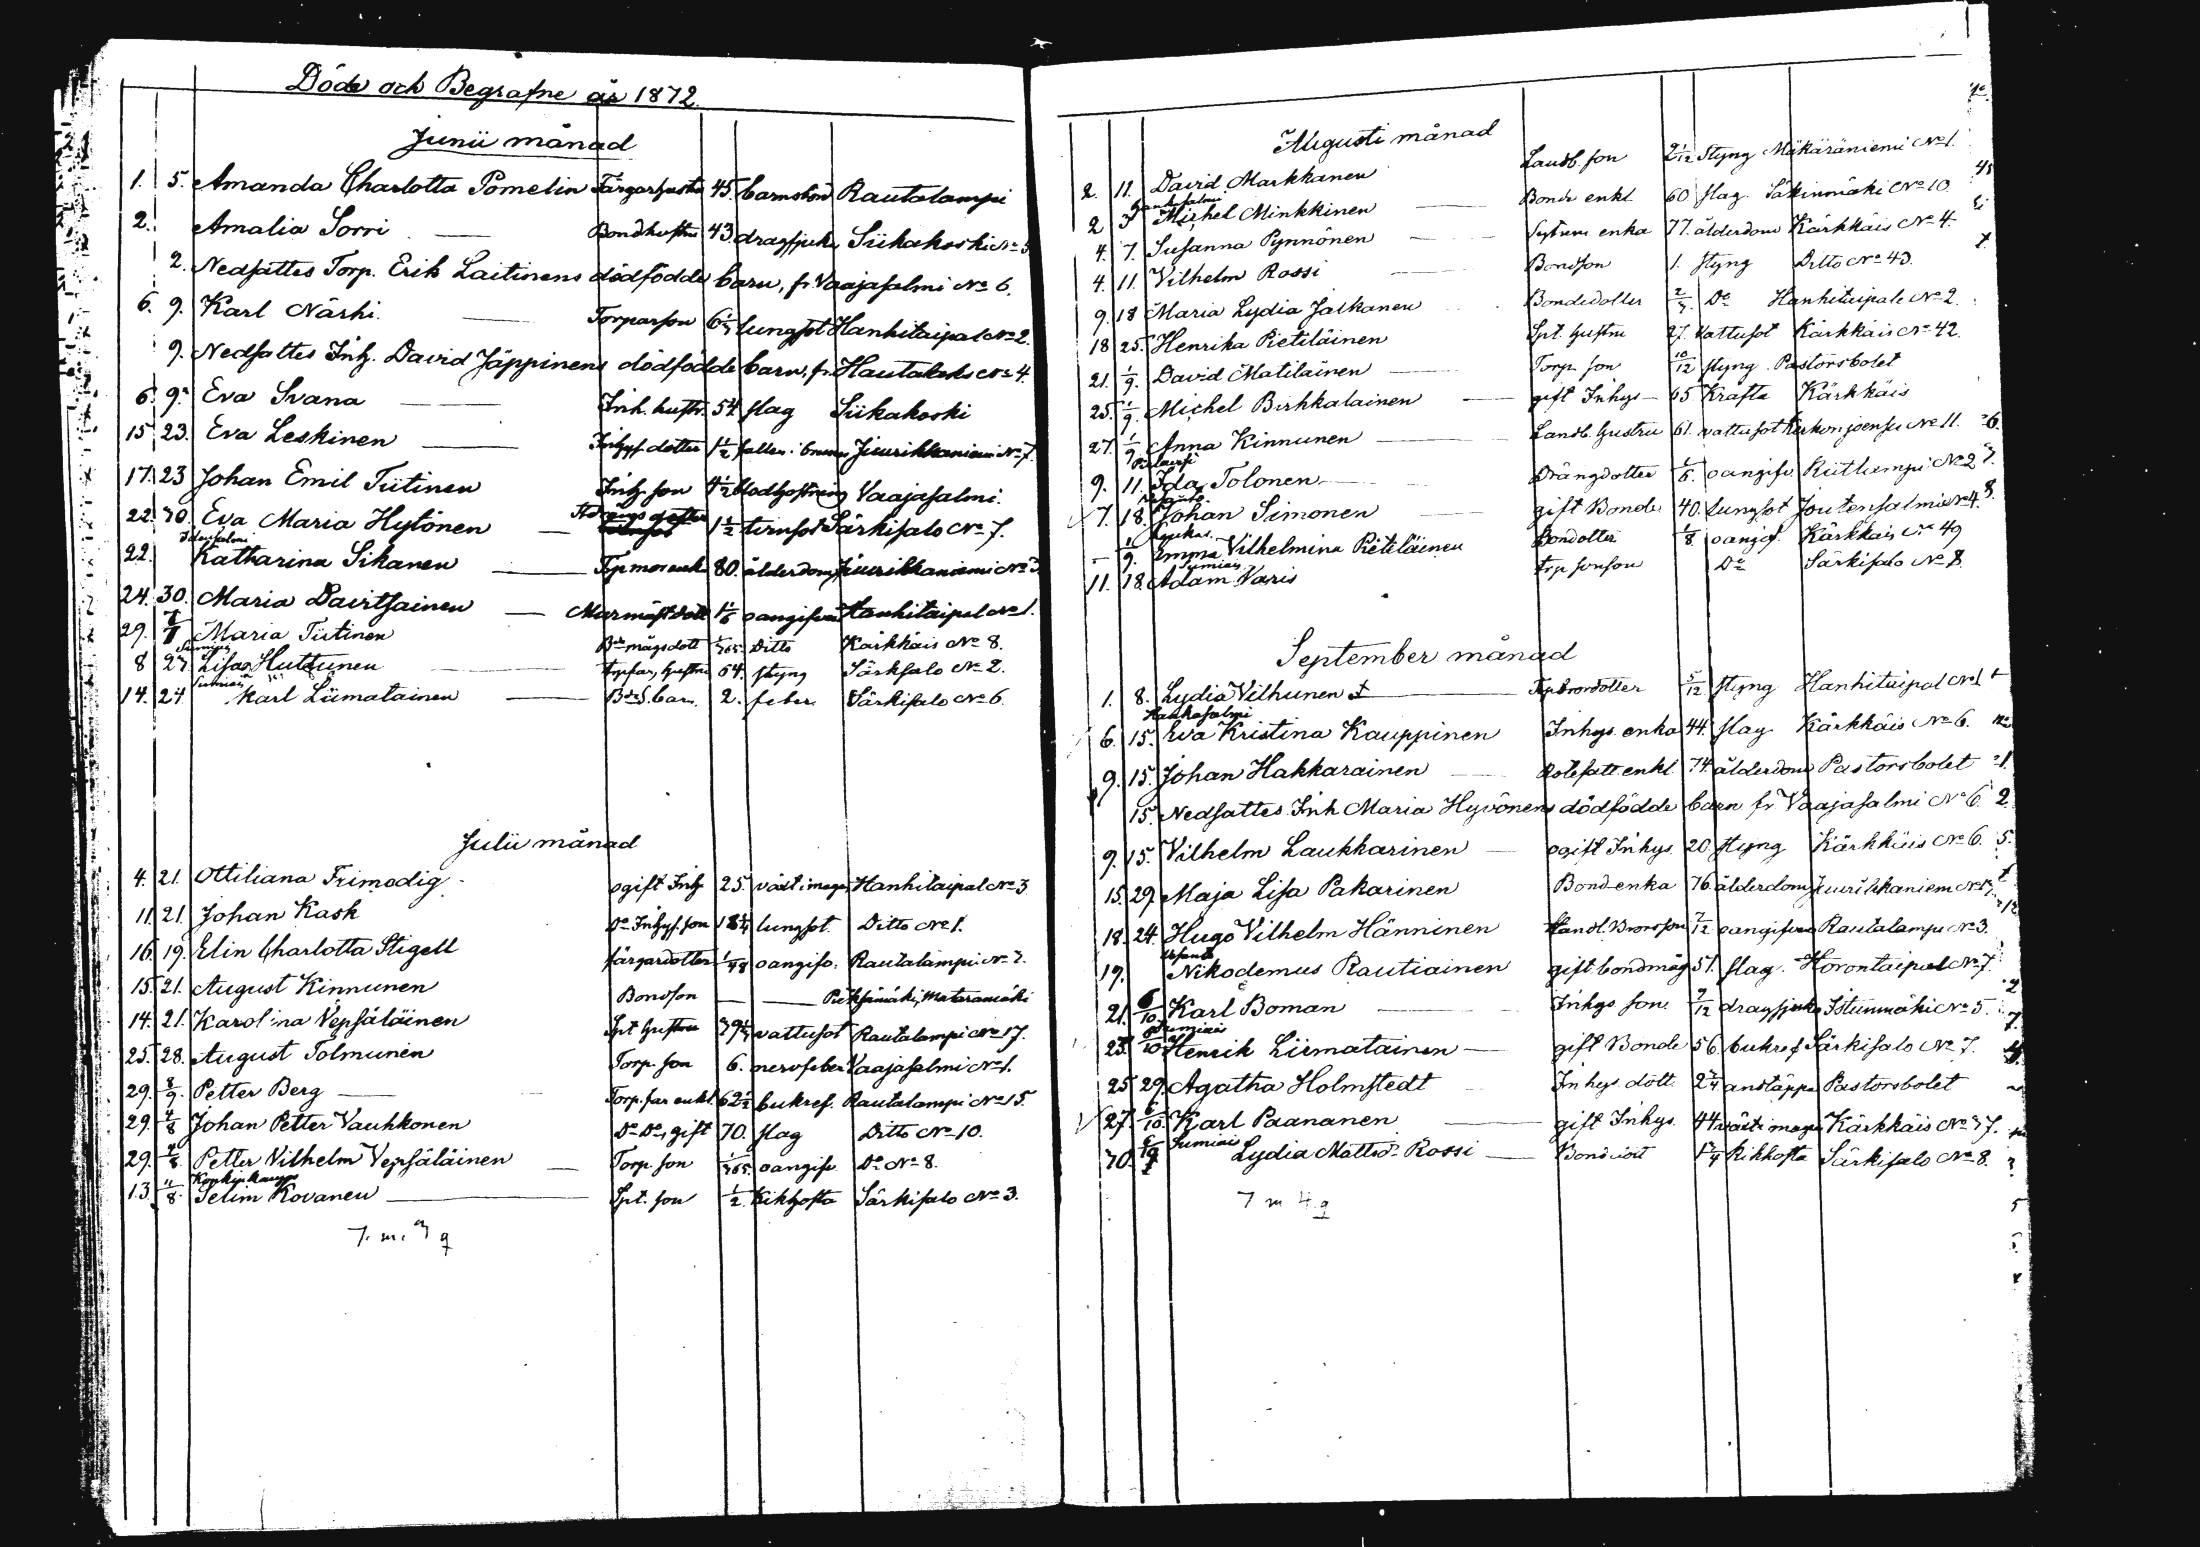 Döde och Begrafne år 1872.
Junii månad
1. 5. Amanda Charlotta Pomelin Färgarhustru 45. barnsbörd Rautalampi
2. Amalia Sorri Bondhustru 43 dragsjuka Siikakoski No 5
2. Nedsattes Torp. Erik Laitinens dödfödde barn, fr. Vaajasalmi No 6.
6. 9. Karl Närhi Torparson lungsot Hankitaipal No 2.
9. Nedsattes Inh. David Jäppinens dödfödde barn, fr. No 4.
6. 9. Eva Svana Inh. hustr. 54. slag Siikakoski
15 23. Eva Leskinen Inhys. dotter 1 1/2 fallen i brunn Jiurikkaniemi No 7.
17. 23 Johan Emil Tiitinen Inh. son 4 1/2 blodhostning Vaajasalmi.
22. 30. Eva Maria Hytönen 1 1/2 Särkisalo No 7.
22. Katharina Sikanen 80. ålderdom Jiurikkaniemi No
24. 30. Maria Davitsainen oangifven Hankitaipal No 1.
29. Maria Tiitinen Bde mågsdott 1/365 Ditto Kärkkäis No 8.
Sumiais
8 27 Lisa Huttunen Torpfar, hustru 64. styng Särkisalo No 2.
Sumiais
14. 24 Karl Liimatainen Bde S. barn 2. feber Särkisalo No 6.
Julii månad
4. 21. Ottiliana Frimodig ogift Inh 25. värk i magen Hankitaipal No 3
11. 21. Johan Kask Do Inhys. son lungsot. Ditto No 1.
16. 19. Elin Charlotta Stigell färgardotter 1/48 oangifv. Rautalampi No 2.
15. 21. August Kinnunen Bondson — Pieksämäki, Mataramäki
14. 21. Karolina Vepsäläinen Spt hustru vattusot Rautalampi No 17.
25. 28. August Tolmunen Torp. son 6. nervfeber Vaajasalmi No 1.
29. 8/9 Petter Berg Torp. far enkl. 62 1/2 bukref. Rautalampi No 15.
29. 4/8 Johan Petter Vauhkonen Do Do, gift 70. slag Ditto No 10.
29. 4/8 Petter Vilhelm Vepsäläinen Torp. son 1/365 oangifv. Do No 8.
13. 11/8 Selim Kovanen Spt. son 1/2 kikhosta Särkisalo No 3.
7. m. 3 q
Augusti månad
2. 11. David Markkanen Landb. son 2 1/12 styng Mäkäräniemi No 1.
Hankasalmi
2 3 Michel Minkkinen Bonde enkl 60 slag. Säkinmäki No 10
4. 7. Susanna Pynnönen enka 77. ålderdom Kärkkäis No 4.
4. 11. Vilhelm Rossi Bondson 1. styng Ditto No 43.
9. 18 Maria Lydia Jalkanen Bondedotter Do Hankitaipale No 2.
18 25. Henrika Pietiläinen Spt. hustru 27. vattusot Kärkkäis No 42.
21. 1/9. David Matiläinen Torp. son 10/12 styng Pastorsbolet
25. 1/9. Michel Birkkalainen gift Inhys 65 Kräfta Kärkkäis
27. 1/9 Anna Kinnunen Landb. hustru 61. vattusot Kerkonjoensu No 11.
9. 11. Ida Tolonen Drängdotter 1/6. oangifv Riitlampi No 2
7. 18. Johan Simonen gift Bonde 40. lungsot Joutensalmi No 4.
— 1/9. Emma Vilhelmina Pietiläinen Bondotter 1/8 oangif. Kärkkäis No 49
Sumiais
11. 18. Adam Varis Trp sonson Do Särkisalo No 8.
September månad
1. 8. Lydia Vilhunen Trp brordotter 5/12 styng Hankitaipal No 1
Hankasalmi
6. 15. Eva Kristina Kauppinen Inhys. enka 44. slag Kärkkäis No 6.
9. 15. Johan Hakkarainen Rotefatt. enkl 74. ålderdom Pastorsbolet
15. Nedsattes Inh Maria Hyvönens dödfödde barn fr Vaajasalmi No 6.
9. 15. Vilhelm Laukkarinen ogift Inhys. 20. styng Kärkkäis No 6.
15. 29. Maja Lisa Pakarinen Bond enka 76. ålderdom Jiurikkaniem
18. 24. Hugo Vilhelm Hänninen Handl. Brorson 7/12 oangifven Rautalampi No 3.
19. Nikodemus Rautiainen gift bondmåg 51. slag. Horontaipal No 7.
21. 6/10. Karl Boman Inhys son 9/12 dragsjuka Istunmäki No 5.
Sumiais
23. 6/10 Henrik Liimatainen gift Bonde 56. bukref Särkisalo No 7.
25 29. Agatha Holmstedt Inhys dott. anstäppa Pastorsbolet
27. 6/10. Karl Paananen gift Inhys. 44 värk i magen Kärkkäis No 37.
Sumiais
Lydia Mattsd. Rossi kikhosta Särkisalo No 8.
7 m 4 q